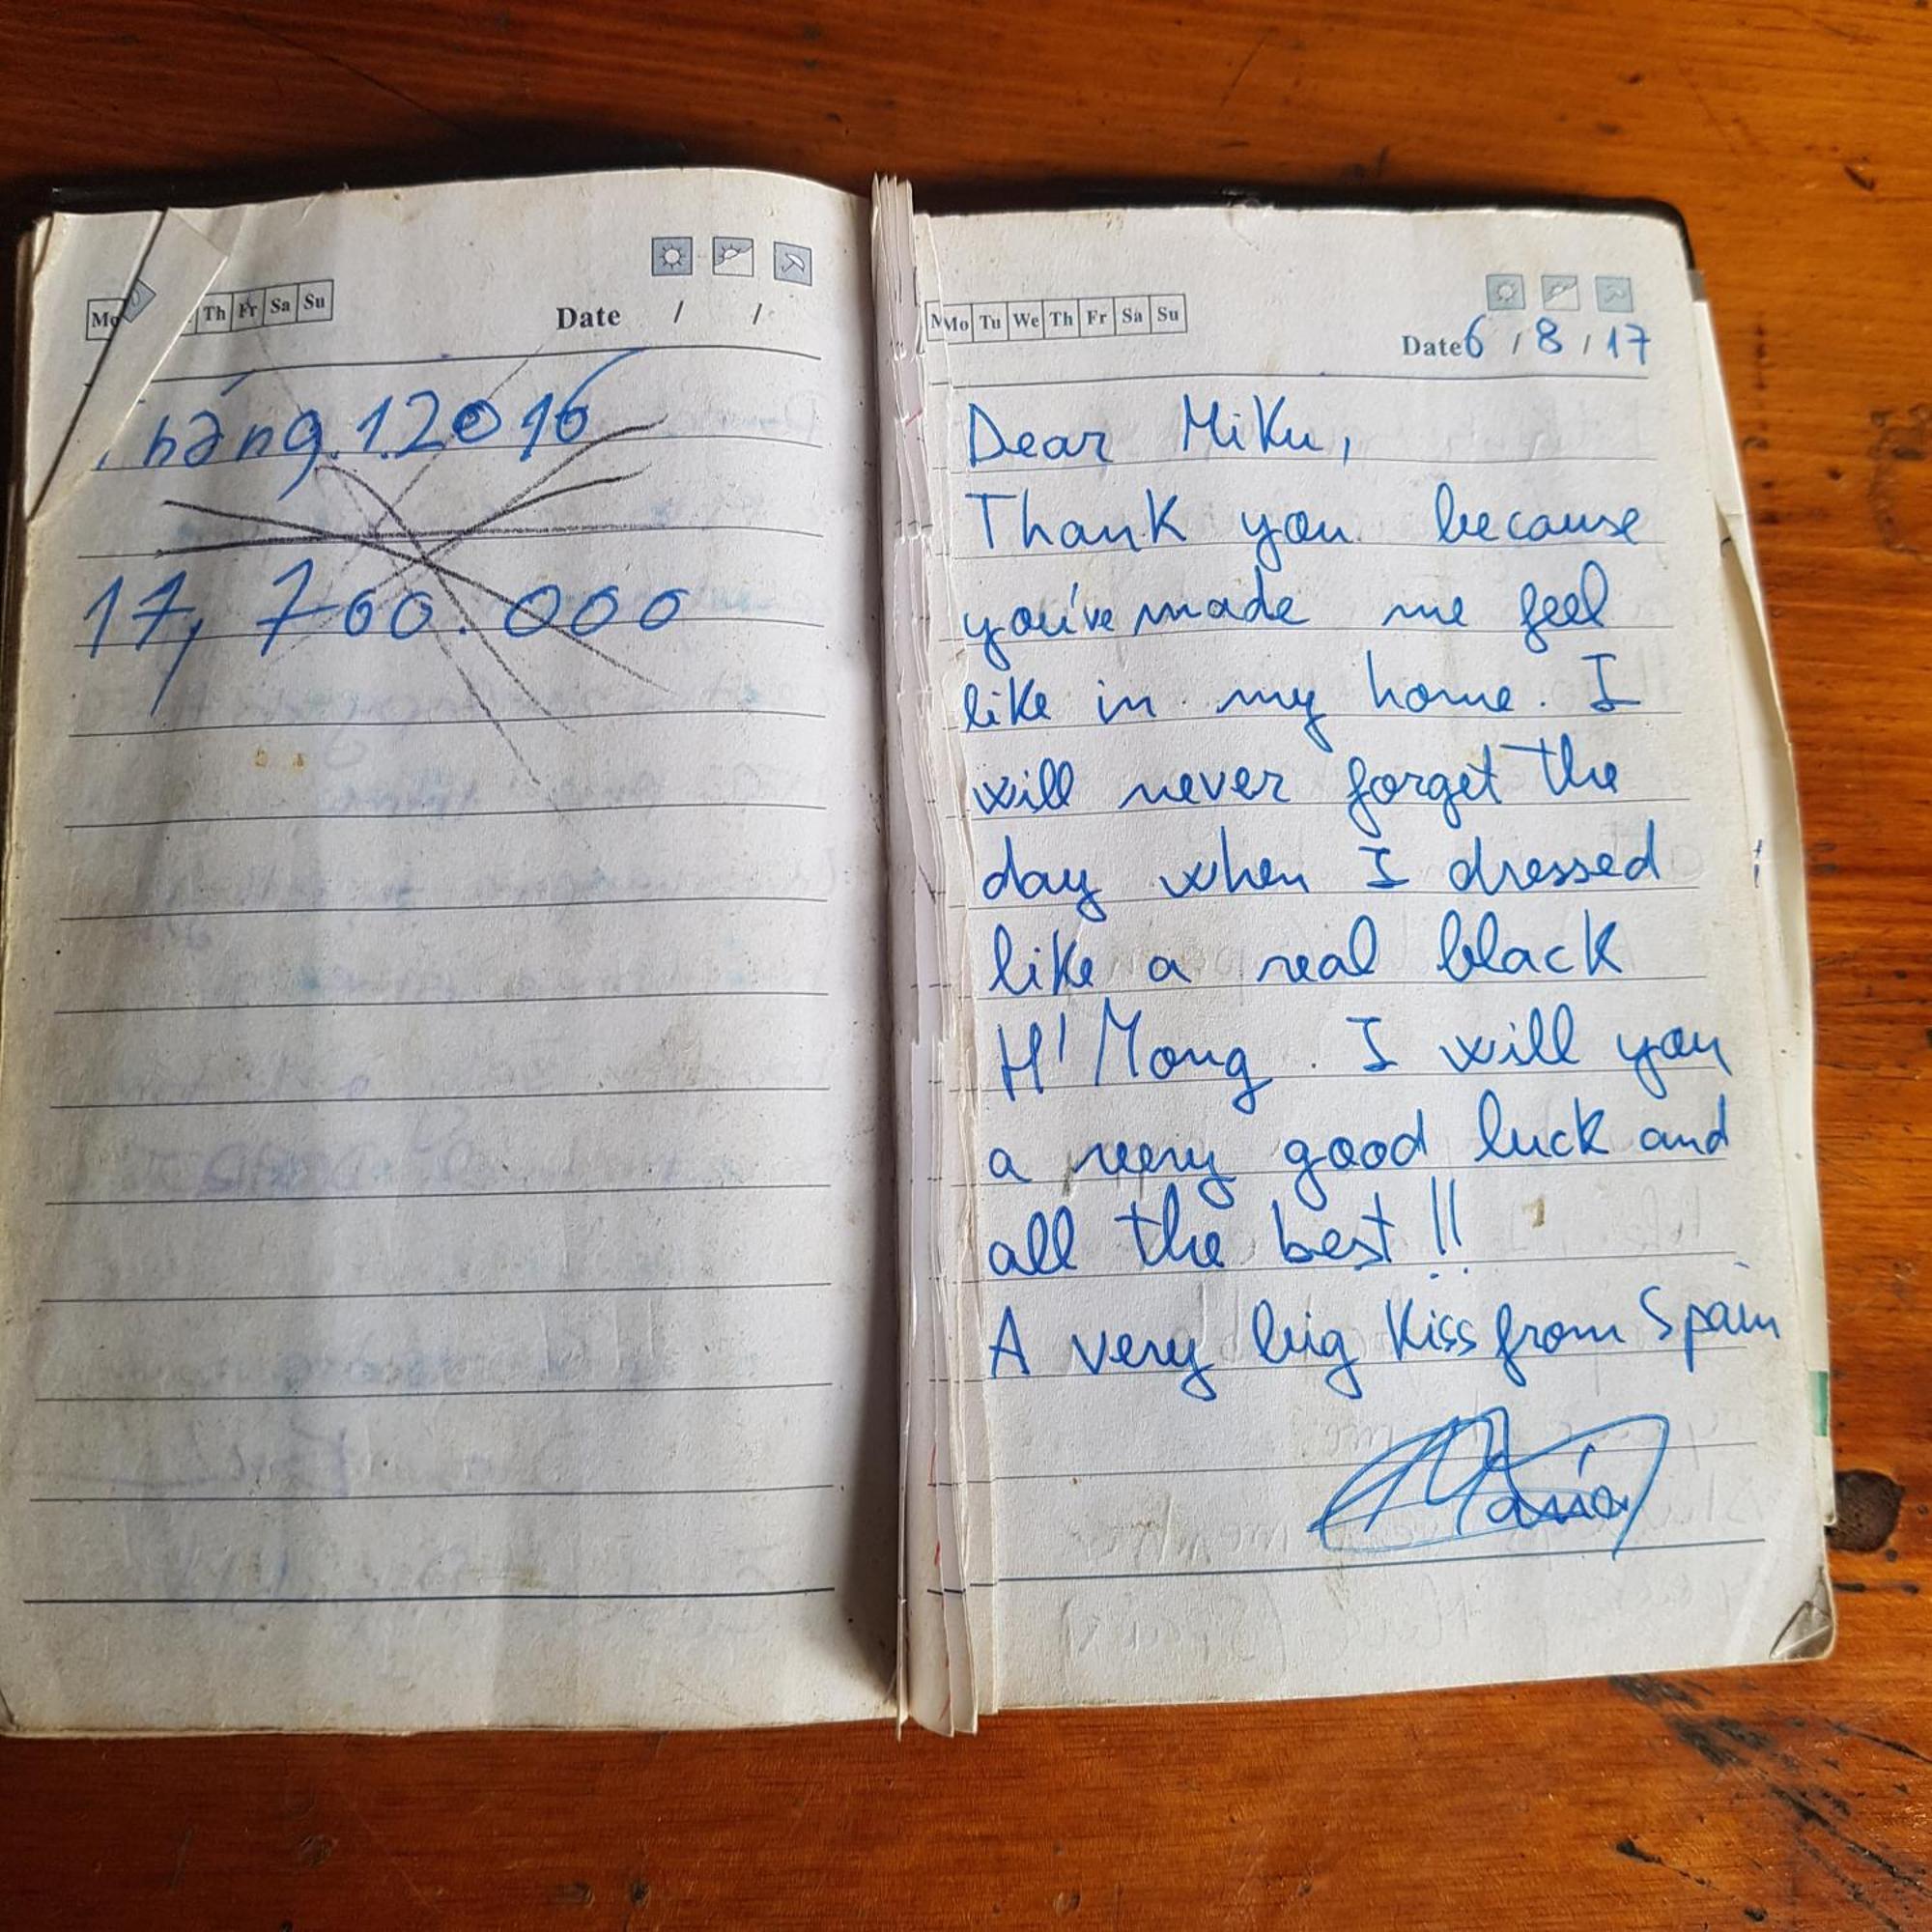 Mo Th Fr Sa Su
Date / /
háng.12016
17,700.000
Mo Tu We Th Fr Sa Su
Date 6 / 8 / 17
Dear Miku,
Thank you because
you've made me feel
like in my home. I
will never forget the
day when I dressed
like a real black
H'Mong. I will you
a very good luck and
all the best!!
A very big Kiss from Spain
María